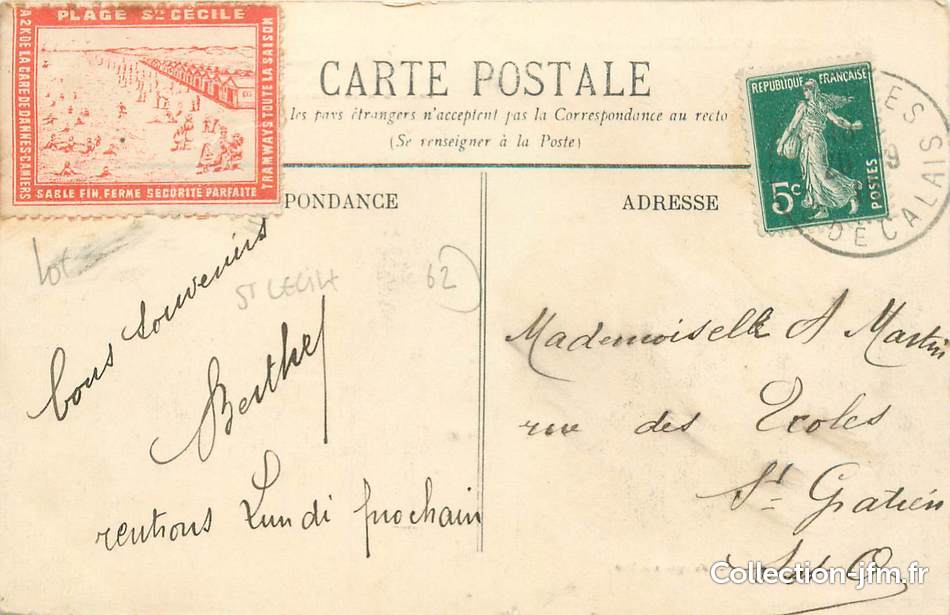 PLAGE Ste CÉCILE
A 2K DE LA GARE DE DANNES-CAMIERS
TRAMWAYS TOUTE LA SAISON
SABLE FIN, FERME SECURITÉ PARFAITE
CARTE POSTALE
les pays étrangers n'acceptent pas la Correspondance au recto
(Se renseigner à la Poste)
PONDANCE
ADRESSE
REPUBLIQUE FRANÇAISE
5c
POSTES
DE CALAIS
lot
St CECILE
62
bons souvenirs
Berthe
rentrons Lundi prochain
Mademoiselle A Martin
rue des Ecoles
St Gratien
S et O
Collection-jfm.fr